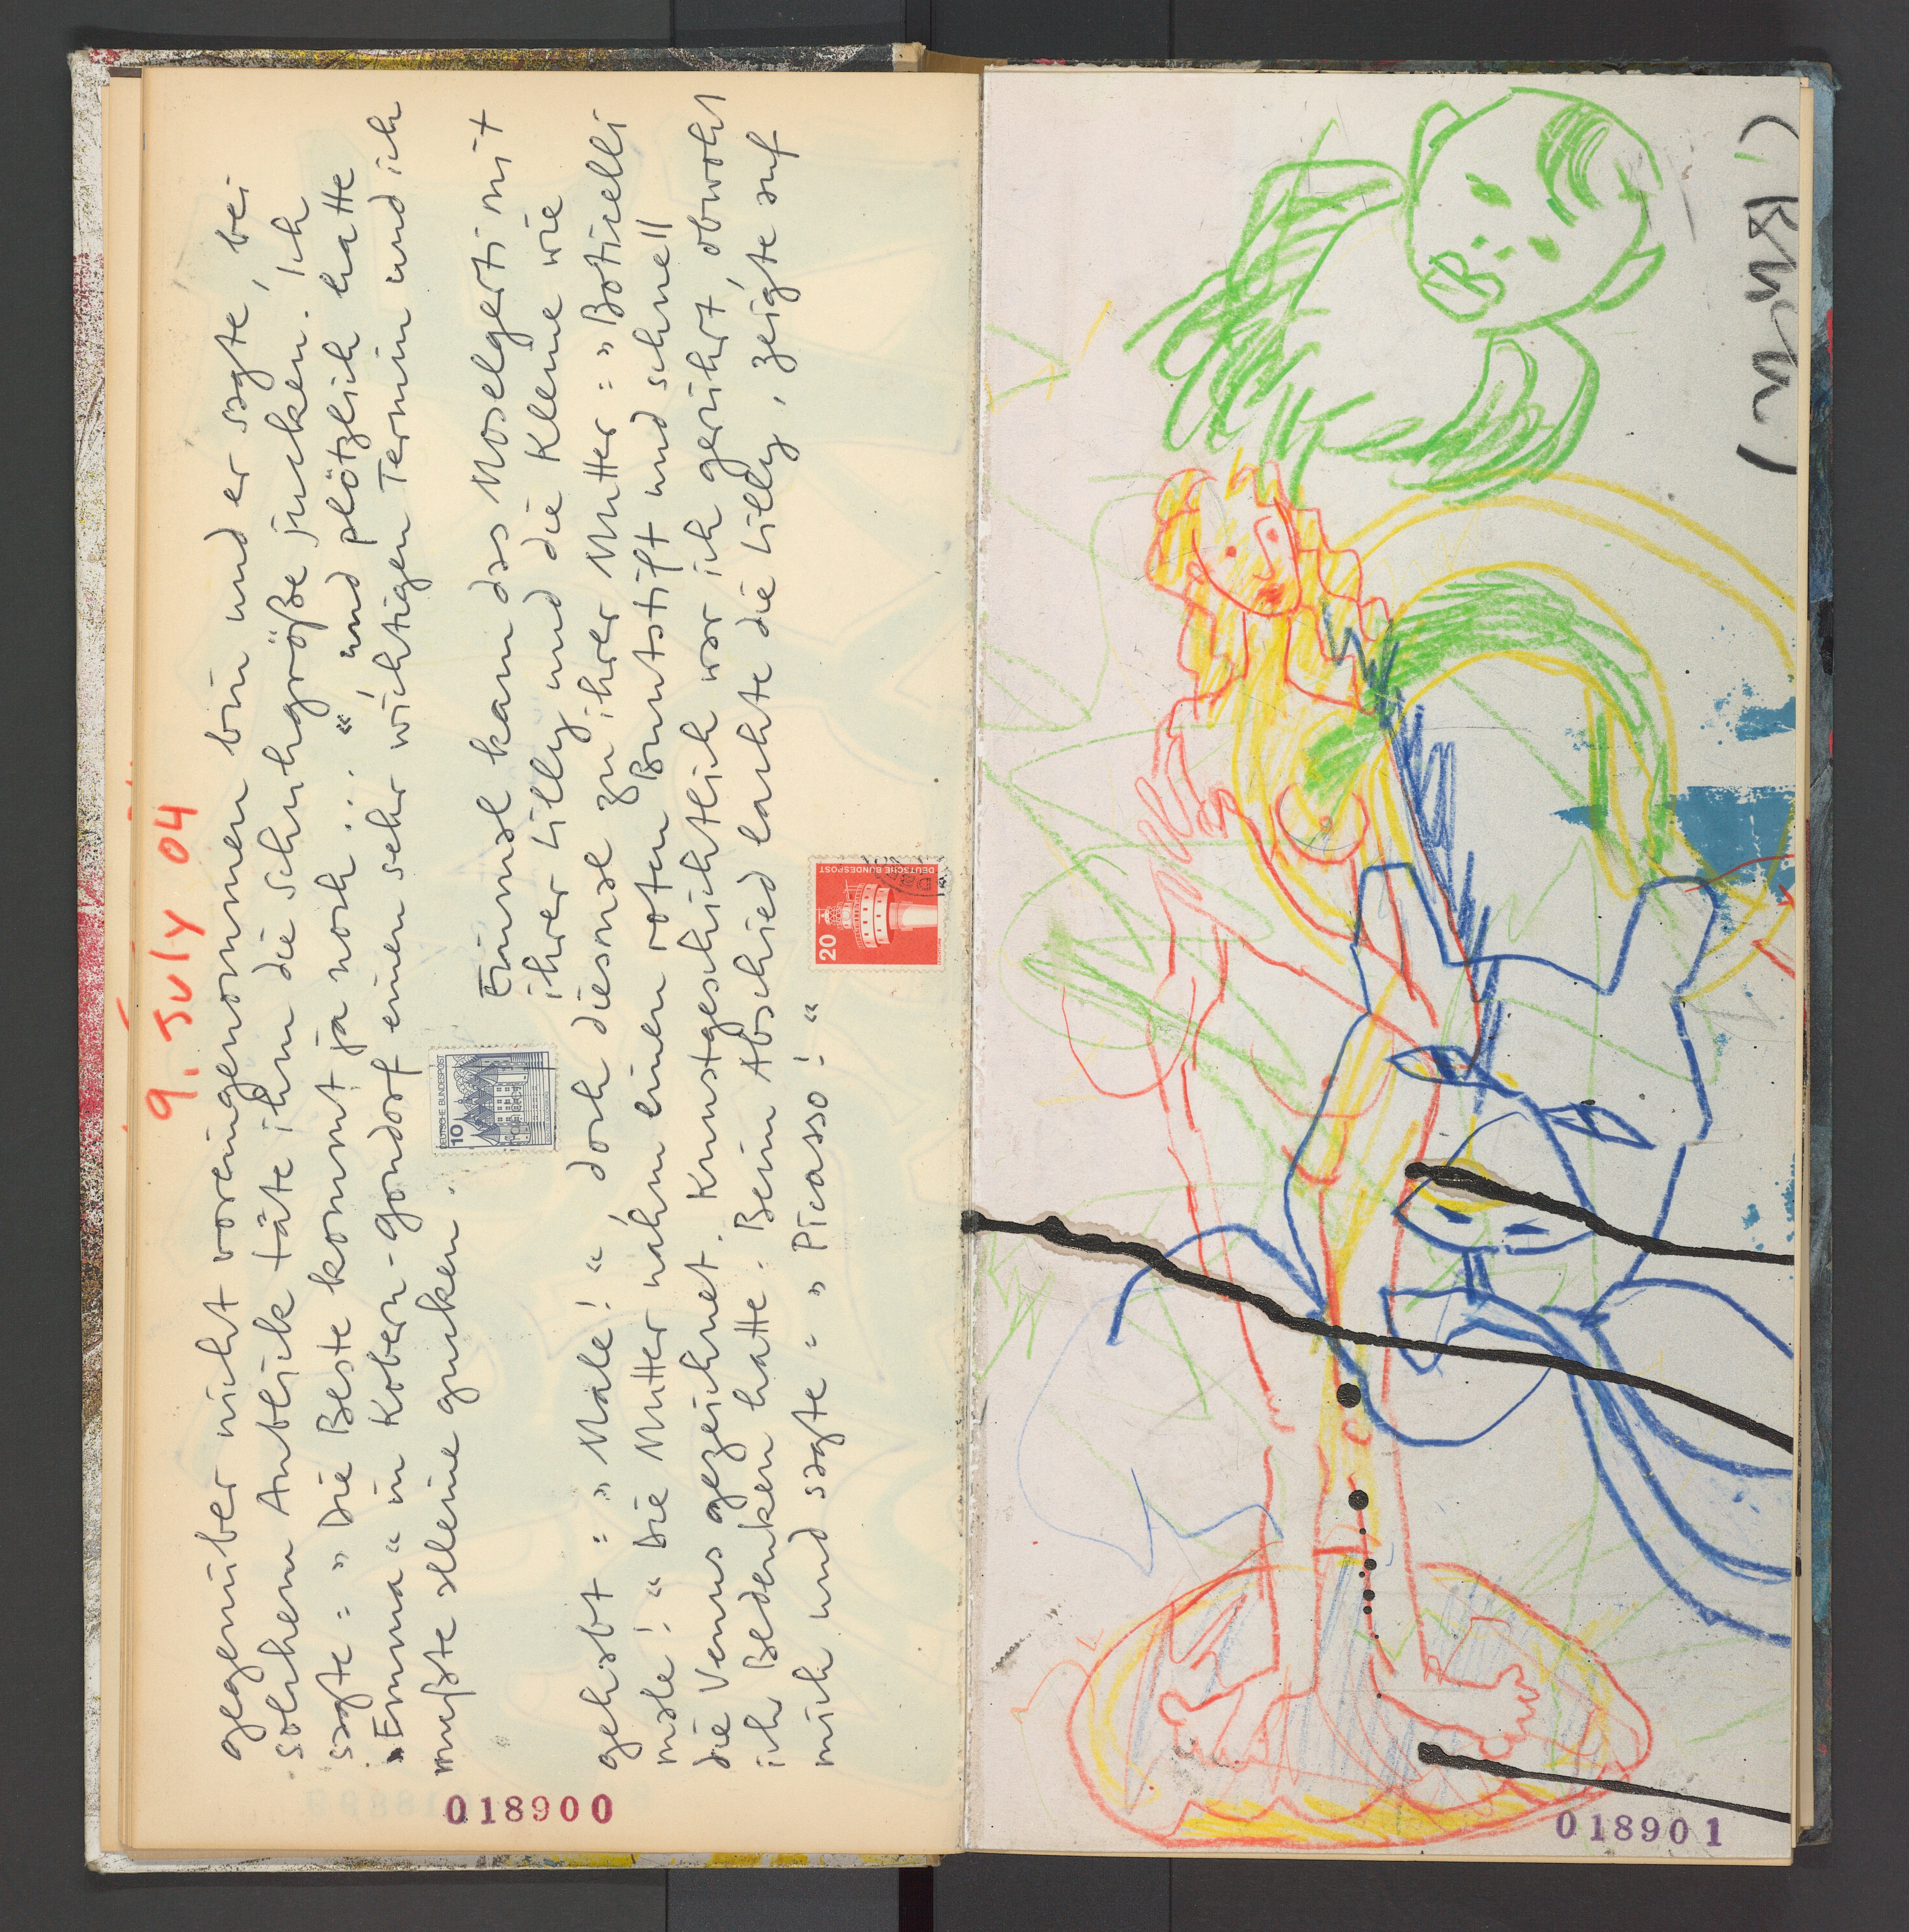 9. July 04
gegenüber nicht voreingenommen bin und er sagte, bei
solchem Anblick täte ihm die Schuhgröße jucken. Ich
sagte : » Die Beste kommt ja noch ... «, und plötzlich hatte
»Emma« in Kobern-Gondorf einen sehr wichtigen Termin und ich
mußte alleine gucken.
Einmal kam das Moselgerti mit
ihrer Lilly und die Kleine wie
gehabt : » Male ! «, doch diesmal zu ihrer Mutter : » Boticelli
male ! « Die Mutter nahm einen roten Buntstift und schnell
die Venus gezeichnet. Kunstgeschichtlich war ich gerührt, obwohl
ich Bedenken hatte. Beim Abschied lachte die Lilly, zeigte auf
mich und sagte : » Picasso ! «
10
DEUTSCHE BUNDESPOST
20
DEUTSCHE BUNDESPOST
018900
018901